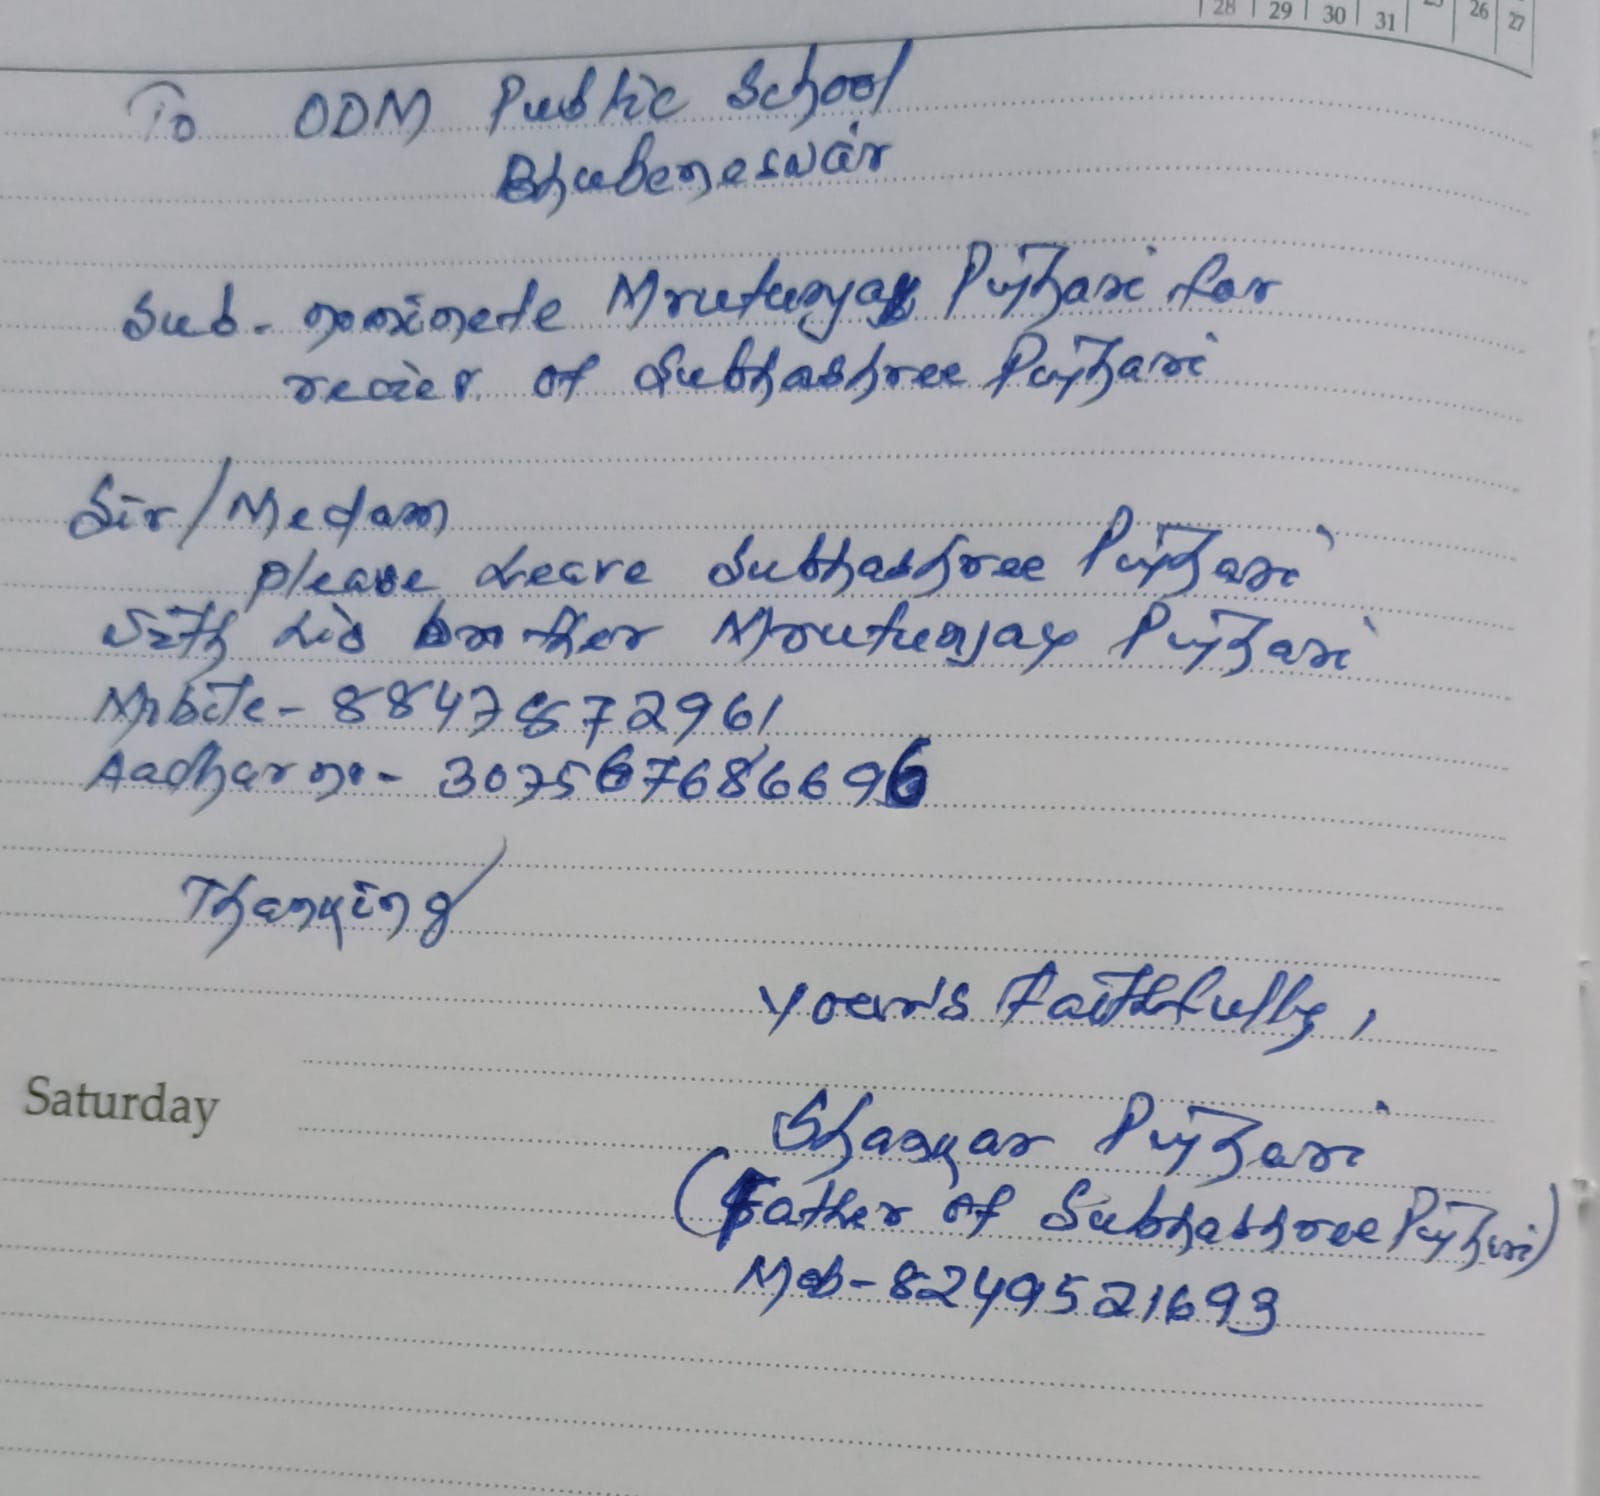 28 29 30 31 26 27
To ODM Public School
Bhubeneswar
Sub - nominete Mrutunjay Pujhari for
recier of Subhashree Pujhari
Sir/Medam
please Leave Subhashree Pujhari
with his brother Mrutunjay Pujhari
Mobile - 8847872961
Aadhar no - 307567686696
Thanking
Your's Faithfully,
Shankar Pujhari
(Father of Subhashree Pujhari)
Mob - 8249521693
Saturday